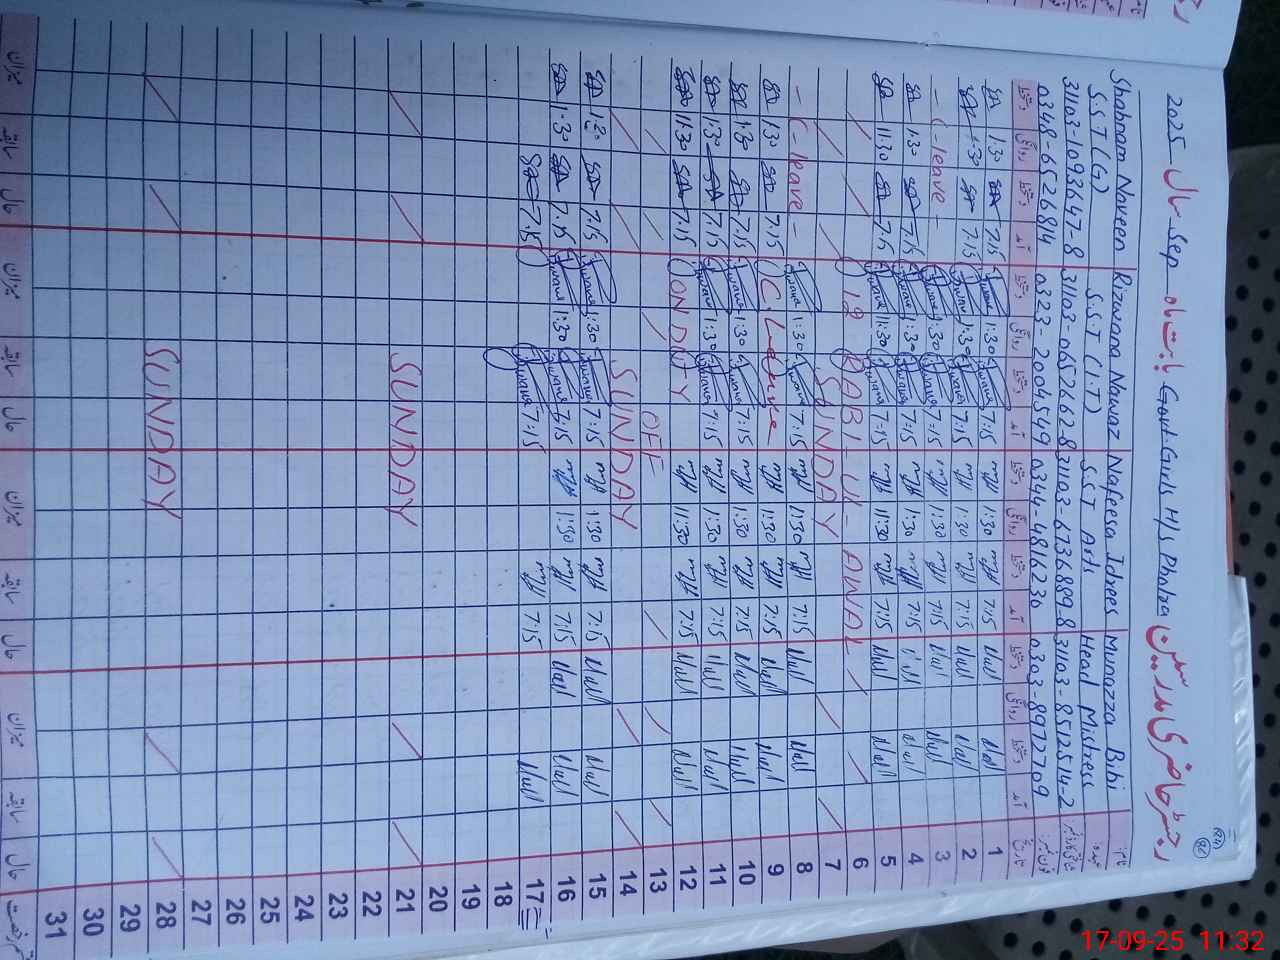 رجسٹر حاضری مدرسین Govt. Girls H/S Phalra بابت ماہ Sep سال 2025
نام: Munazza Bibi Nafeesa Idrees Rizwana Nawaz Shabnam Naveen
عہدہ Head Mistress S.S.T Arts S.S.T (I.T) S.S.T (G)
31103-8512514-2 31103-6736889-8 31103-0652662-8 31103-1093647-8
فون نمبر: 0303-8972709 0344-4816230 0323-2004549 0348-6526814
تاریخ آمد دستخط روانگی دستخط آمد دستخط روانگی دستخط آمد دستخط روانگی دستخط آمد دستخط روانگی دستخط
1 7:15 1:30 7:15 1:30 7:15 1:30
2 7:15 1:30 7:15 1:30 7:15 1:30
3 7:15 1:30 7:15 1:30 - C-leave -
4 7:15 1:30 7:15 1:30 7:15 1:30
5 7:15 11:30 7:15 11:30 7:15 11:30
6 12 RABI-UL-AWAL
7 SUNDAY
8 7:15 1:30 7:15 1:30 - C-leave -
9 7:15 1:30 C.Leave 7:15 1:30
10 7:15 1:30 7:15 1:30 7:15 1:30
11 7:15 1:30 7:15 1:30 7:15 1:30
12 7:15 11:30 7:15 11:30
13 OFF
14 SUNDAY
15 7:15 1:30 7:15 1:30 7:15 1:30
16 7:15 1:30 7:15 1:30 7:15 1:30
17 7:15 7:15 7:15
18
19
20
21 SUNDAY
22
23
24
25
26
27
28 SUNDAY
29
30
31
حال سابقہ میزان حال سابقہ میزان حال سابقہ میزان حال سابقہ میزان
17-09-25 11:32